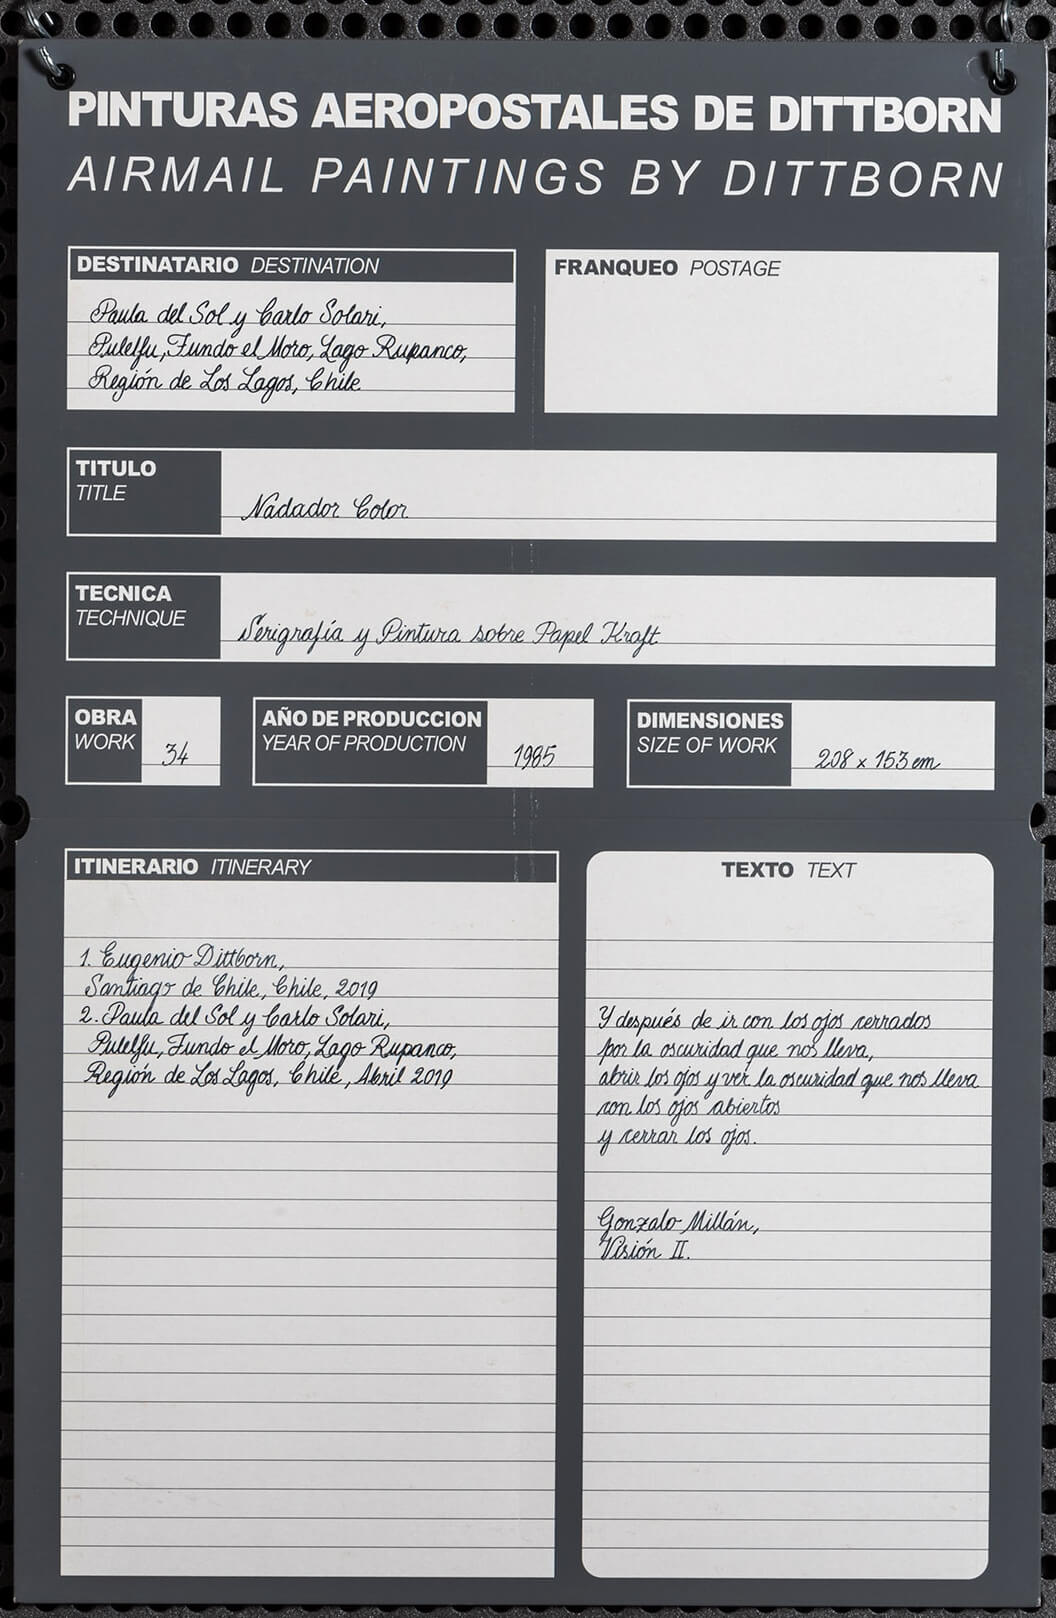 PINTURAS AEROPOSTALES DE DITTBORN
AIRMAIL PAINTINGS BY DITTBORN
DESTINATARIO DESTINATION
Paula del Sol y Carlo Solari,
Pulelfu, Fundo el Moro, Lago Rupanco,
Región de Los Lagos, Chile
FRANQUEO POSTAGE
TITULO
TITLE
Nadador Color
TECNICA
TECHNIQUE
Serigrafía y Pintura sobre Papel Kraft
OBRA
WORK
34
AÑO DE PRODUCCION
YEAR OF PRODUCTION
1985
DIMENSIONES
SIZE OF WORK
208 x 153 cm
ITINERARIO ITINERARY
1. Eugenio Dittborn,
Santiago de Chile, Chile, 2019
2. Paula del Sol y Carlo Solari,
Pulelfu, Fundo el Moro, Lago Rupanco,
Región de Los Lagos, Chile, Abril 2019
TEXTO TEXT
Y después de ir con los ojos cerrados
por la oscuridad que nos lleva,
abrir los ojos y ver la oscuridad que nos lleva
con los ojos abiertos
y cerrar los ojos.
Gonzalo Millán,
Visión II.